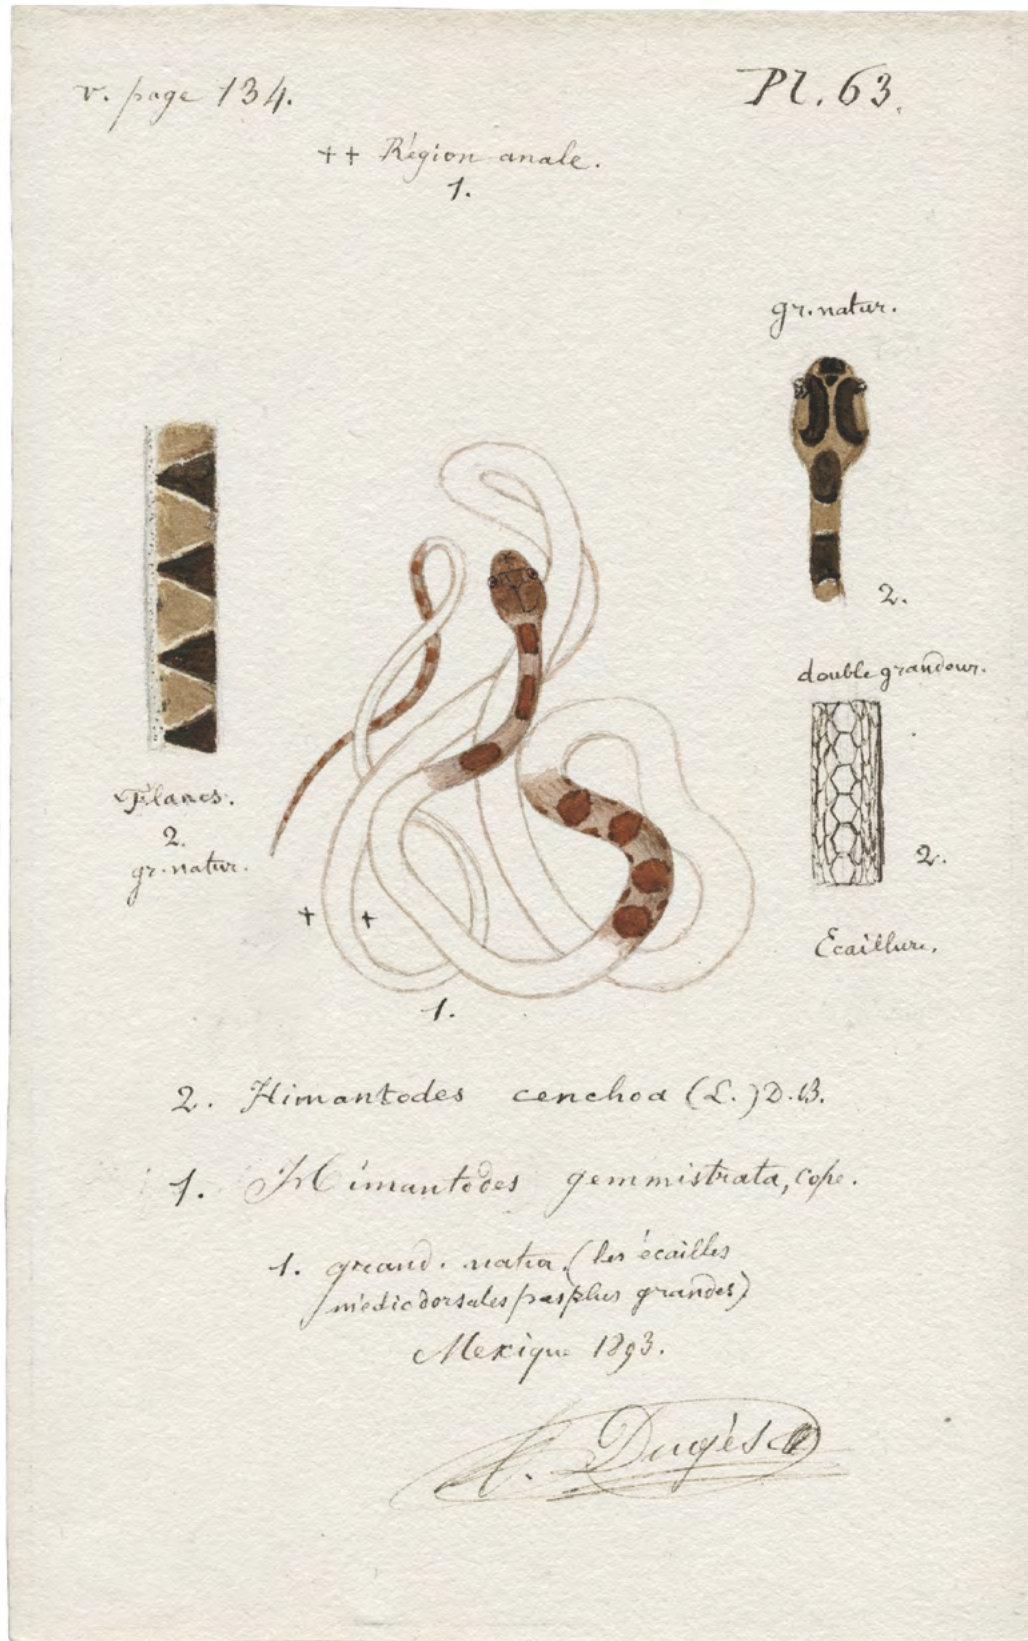 v. page 134.
Pl. 63.
++ Région anale.
1.
gr. natur.
2.
double grandeur.
Flancs.
2.
gr. natur.
2.
Ecaillure.
+ +
1.
2. Himantodes cenchoa (L.) D.B.
1. Himantodes gemmistrata, Cope.
1. grand. natur. (les écailles
médiodorsales pas plus grandes)
Mexique 1893.
A. Dugès